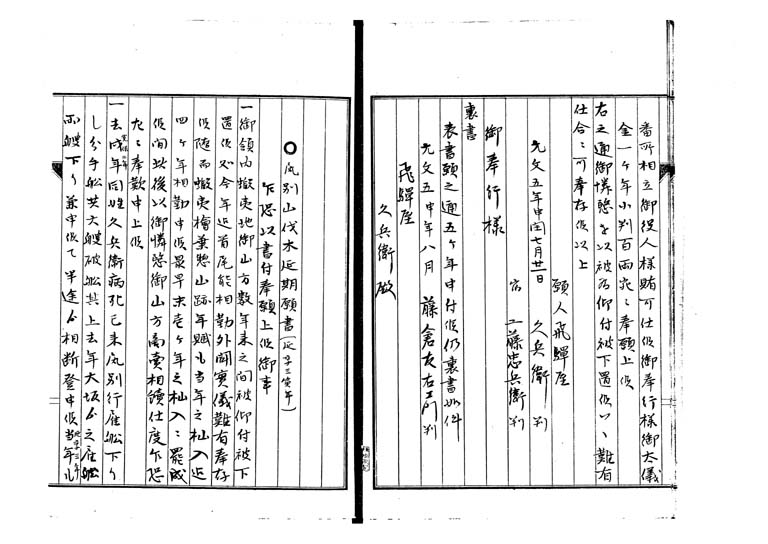 番所相立御役人様賄可仕候御奉行様御大儀
金一ヶ年小判百両宛ニ奉願上候
右之通御憐愍を以被為仰付被下置候ハヽ難有
仕合ニ可奉存候以上
元文五年申閏七月廿一日
願人飛騨屋
久兵衛 判
宿
工藤忠兵衛 判
御奉行様
裏書
表書願之通五ヶ年申付候仍裏書如件
元文五申年八月 藤倉友右エ門 判
飛騨屋
久兵衛殿
〇凨別山伐木延期願書(延享三寅年)
乍恐以書付奉願上候御事
一御領内蝦夷地御山方数年来之間被仰付被下
置候又今年迄首尾能相勤外聞実儀難有奉存
候随而蝦夷檜葉惣山跡年賦も当年之杣入迄
四ヶ年相勤申候最早末壱ヶ年之杣入ニ罷成
候間此後以御憐愍御山方商売相続仕度乍恐
左ニ奉歎申上候
一去戌年同姓久兵衛病死己来凨別行雇船下り
し分手船共大艘破船其上去年大坂ゟ之雇船
而艘下り兼申候て半途ゟ相断登申候当年ハ